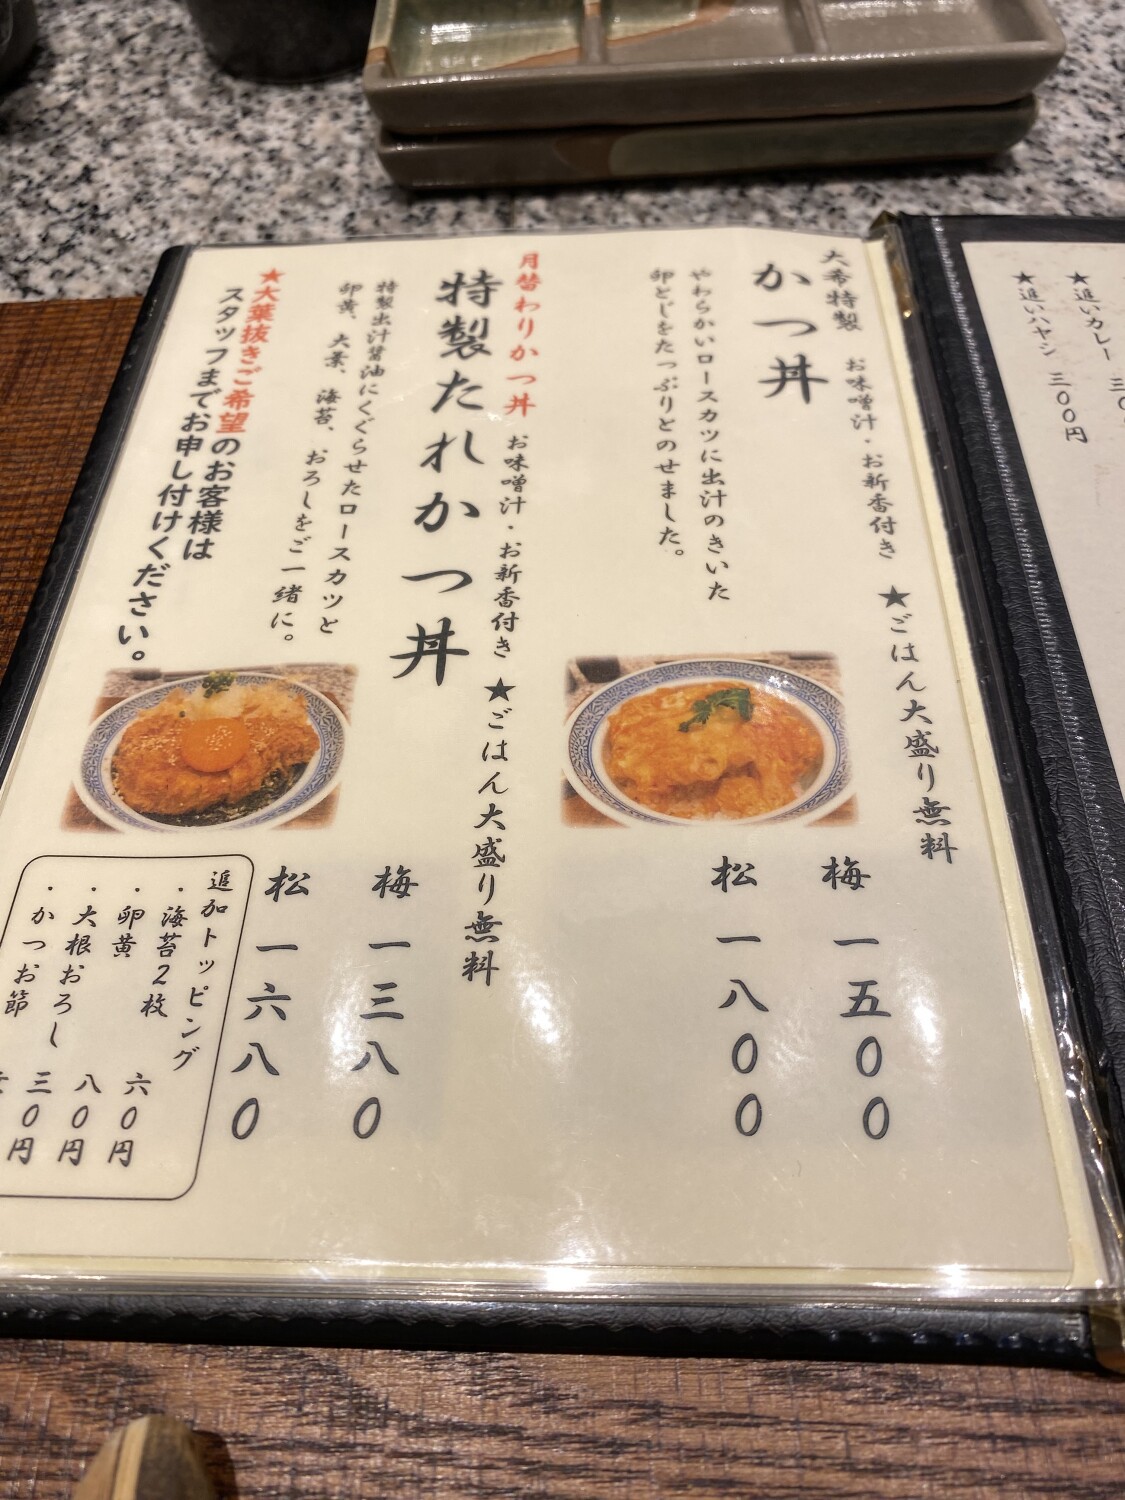 ★追いカレー
★追いハヤシ 三〇〇円
大希特製
かつ丼
お味噌汁・お新香付き ★ごはん大盛り無料
やわらかいロースカツに出汁のきいた
卵とじをたっぷりとのせました。
梅 一五〇〇
松 一八〇〇
月替わりかつ丼
お味噌汁・お新香付き ★ごはん大盛り無料
特製たれかつ丼
特製出汁醤油にくぐらせたロースカツと
卵黄、大葉、海苔、おろしをご一緒に。
★大葉抜きご希望のお客様は
スタッフまでお申し付けください。
梅 一三八〇
松 一六八〇
追加トッピング
・海苔2枚 六〇円
・卵黄 八〇円
・大根おろし 三〇円
・かつお節